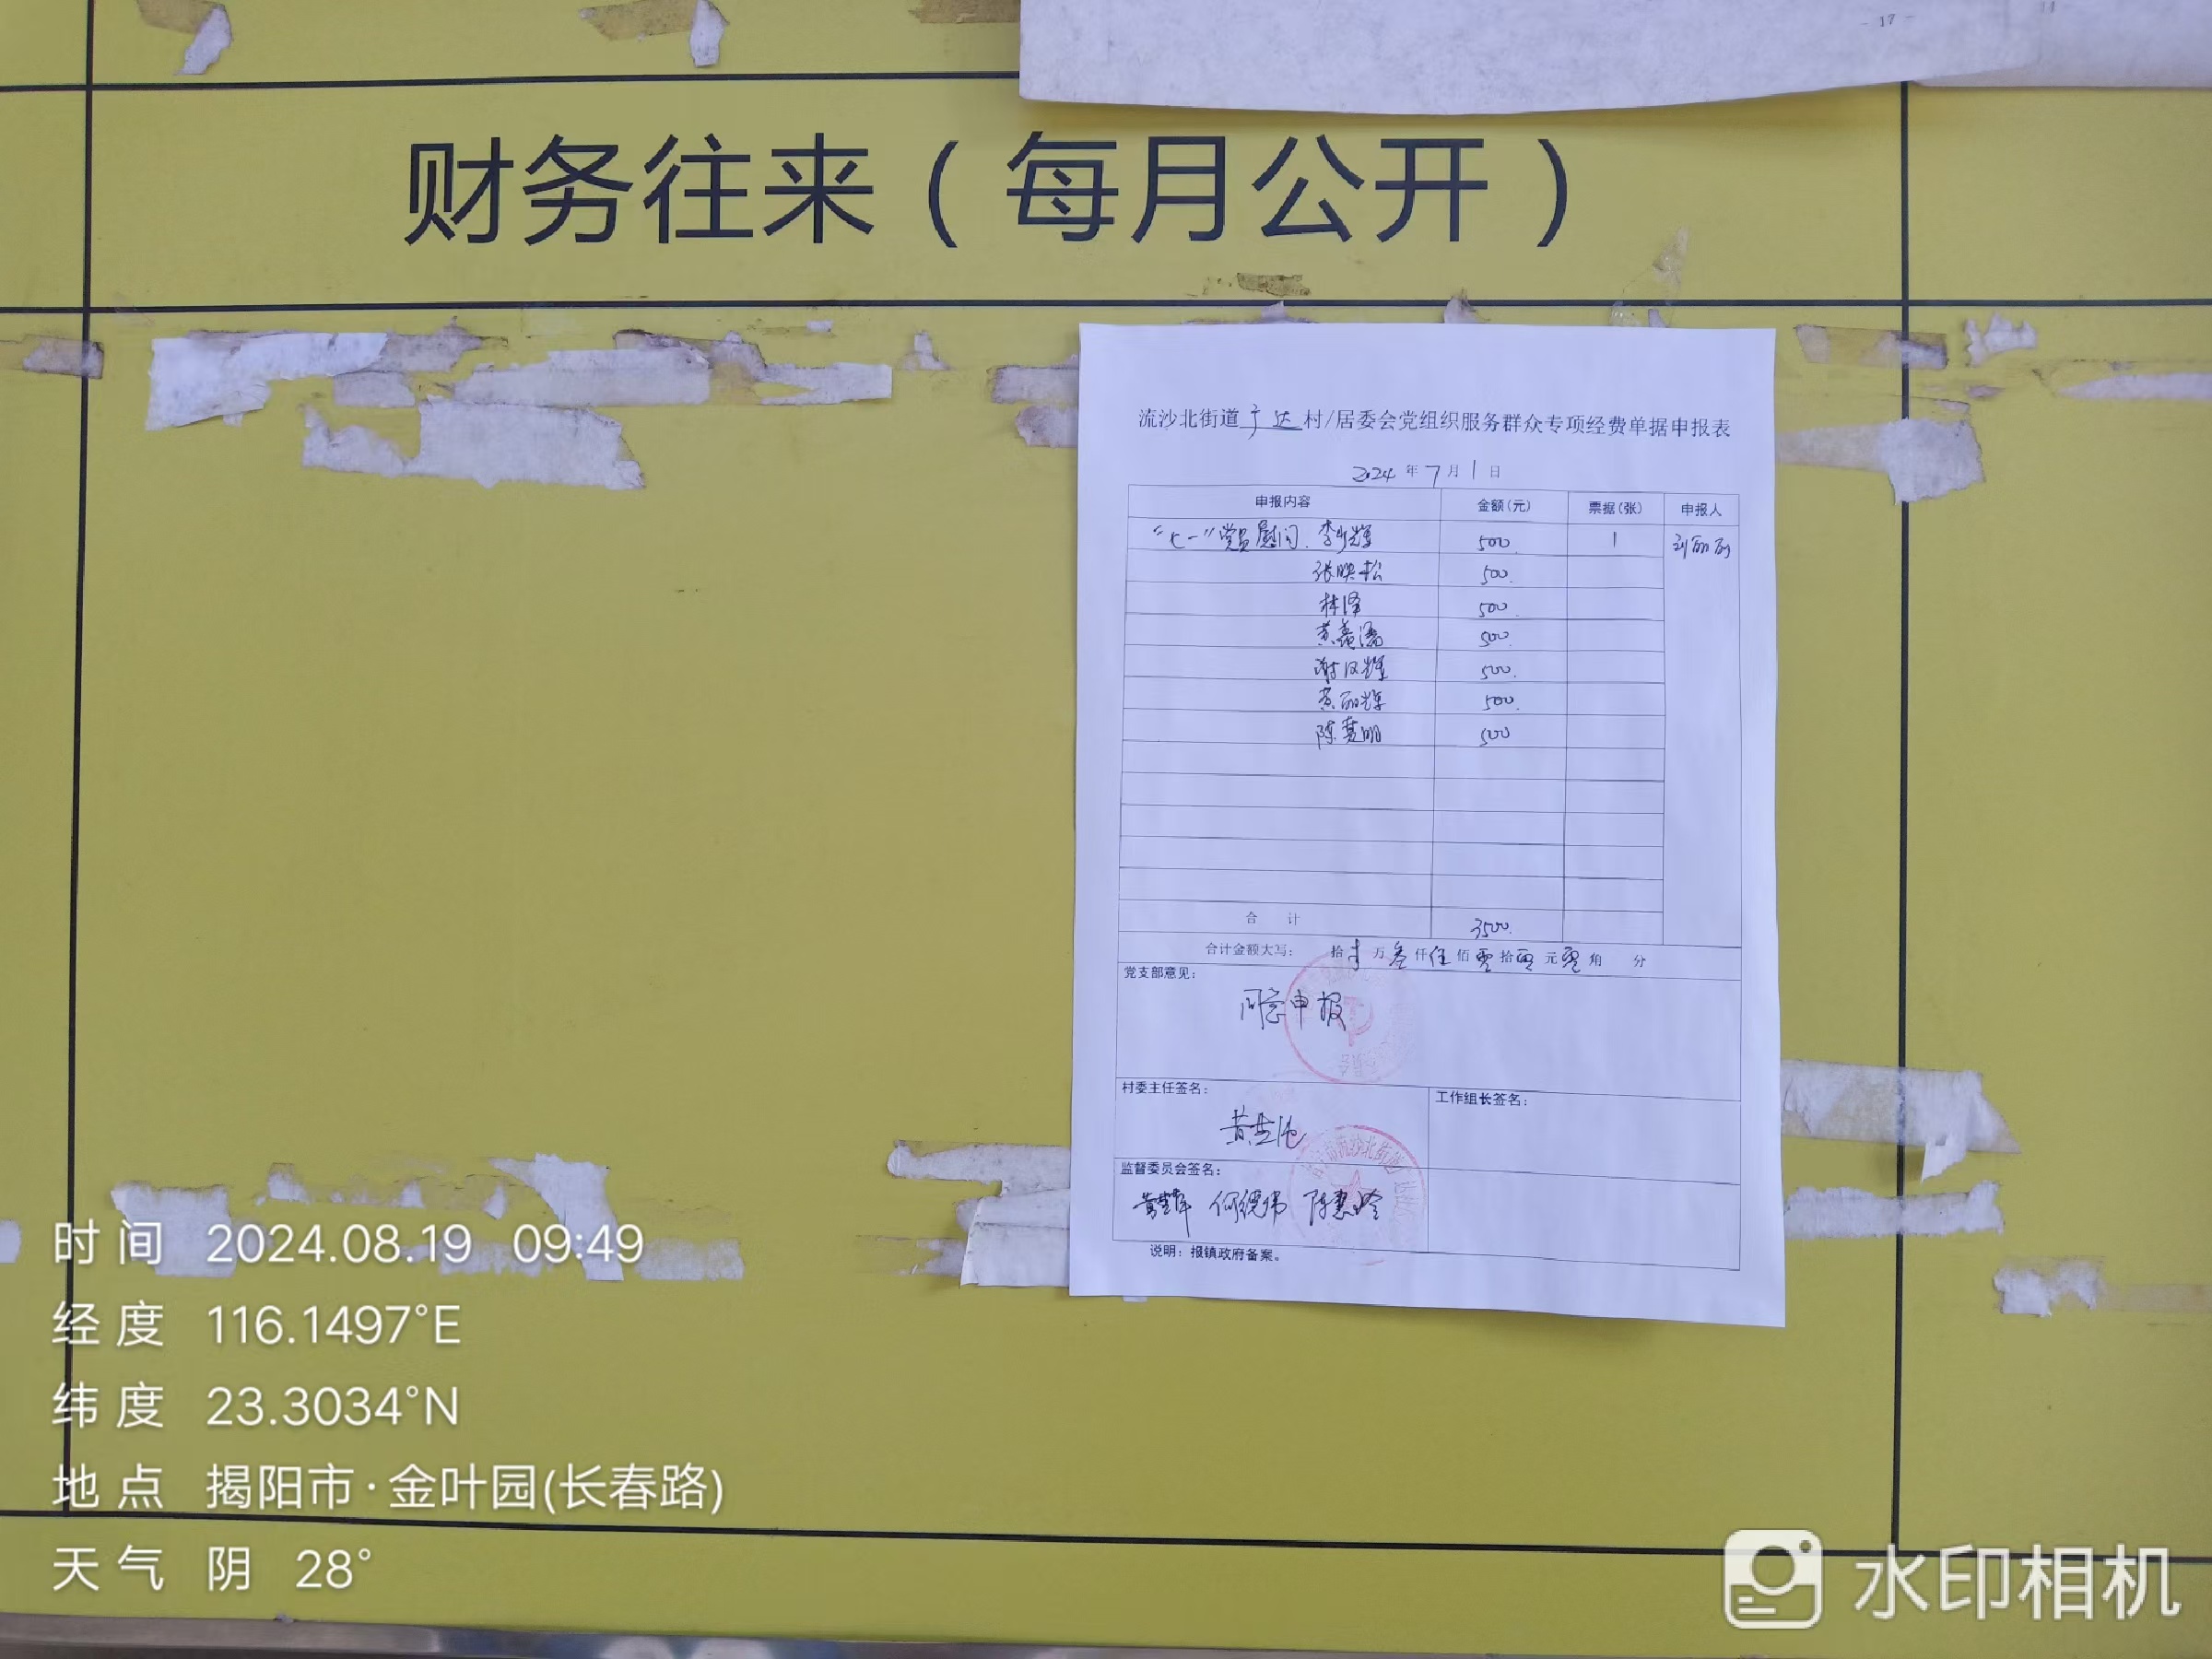 - 17 -
财务往来（每月公开）
流沙北街道广达村/居委会党组织服务群众专项经费单据申报表
2024年7月1日
申报内容 金额(元) 票据(张) 申报人
“七一”党员慰问. 李少辉 500. 1 刘丽丽
张映松 500.
林泽 500.
黄 500.
谢汉辉 500.
黄丽辉 500.
陈慧明 500
合 计 3500.
合计金额大写： 拾 万叁仟伍佰零拾零元零角 分
党支部意见：
同意申报
村委主任签名： 工作组长签名：
监督委员会签名：
何德伟 陈惠玲
说明：报镇政府备案。
时间 2024.08.19 09:49
经度 116.1497°E
纬度 23.3034°N
地点 揭阳市·金叶园(长春路)
天气 阴 28°
水印相机